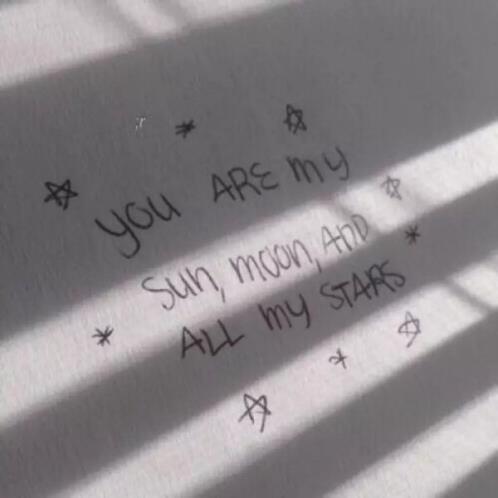 YOU ARE my
Sun, moon, AnD
ALL my STARS